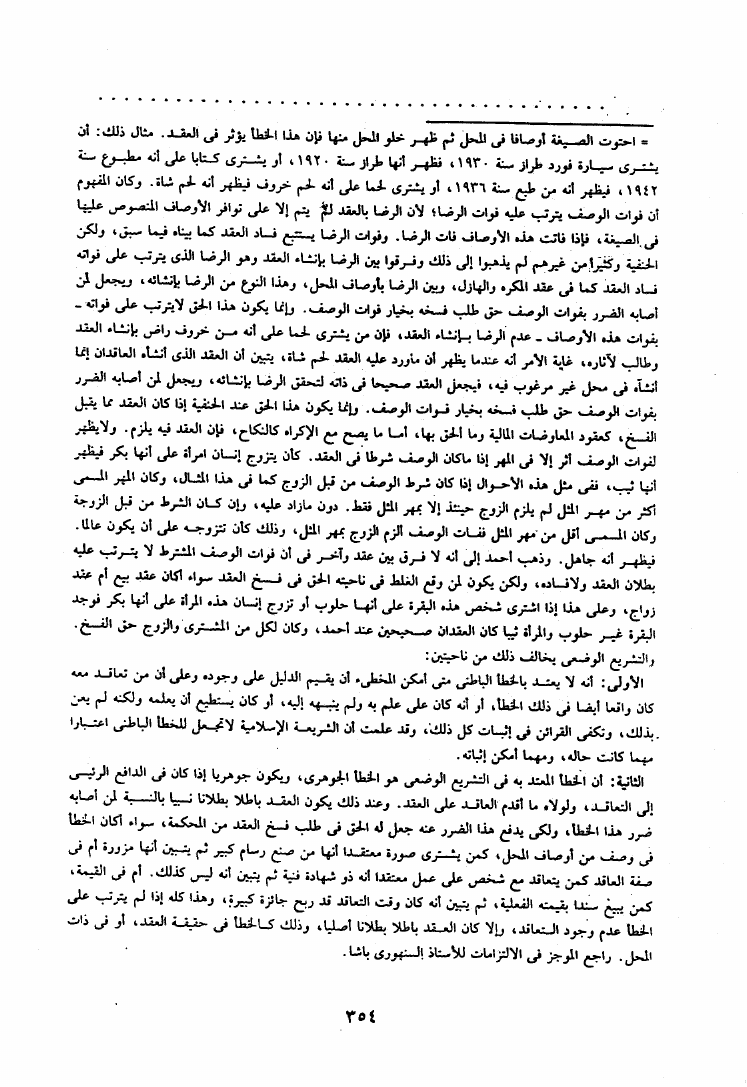 = احتوت الصيغة أوصافا فى المحل ثم ظهر خلو المحل منها فإن هذا الخطأ يؤثر فى العقد. مثال ذلك: أن
يشترى سيارة فورد طراز سنة ١٩٣٠، فظهر أنها طراز سنة ١٩٢٠، أو يشترى كتابا على أنه مطبوع سنة
١٩٤٢، فيظهر أنه من طبع سنة ١٩٣٦، أو يشترى لحما على أنه لحم خروف فيظهر أنه لحم شاة. وكان المفهوم
أن فوات الوصف يترتب عليه فوات الرضا؛ لأن الرضا بالعقد لم يتم إلا على توافر الأوصاف المنصوص عليها
فى الصيغة، فإذا فاتت هذه الأوصاف فات الرضا. وفوات الرضا يستتبع فساد العقد كما بيناه فيما سبق، ولكن
الحنفية وكثيرا من غيرهم لم يذهبوا إلى ذلك وفرقوا بين الرضا بإنشاء العقد وهو الرضا الذى يترتب على فواته
فساد العقد كما فى عقد المكره والهازل، وبين الرضا بأوصاف المحل، وهذا النوع من الرضا بإنشائه، ويجعل لمن
أصابه الضرر بفوات الوصف حق طلب فسخه بخيار فوات الوصف. وإنما يكون هذا الحق لايترتب على فواته ـ
بفوات هذه الأوصاف ـ عدم الرضا بإنشاء العقد، فإن من يشترى لحما على أنه من خروف راض بإنشاء العقد
وطالب لآثاره، غاية الأمر أنه عندما يظهر أن ماورد عليه العقد لحم شاة، يتبين أن العقد الذى أنشأه العاقدان إنما
أنشآه فى محل غير مرغوب فيه، فيجعل العقد صحيحا فى ذاته لتحقق الرضا بإنشائه، ويجعل لمن أصابه الضرر
بفوات الوصف حق طلب فسخه بخيار فوات الوصف. وإنما يكون هذا الحق عند الحنفية إذا كان العقد مما يقبل
الفسخ، كعقود المعاوضات المالية وما ألحق بها، أما ما يصح مع الإكراه كالنكاح، فإن العقد فيه يلزم. ولايظهر
لفوات الوصف أثر إلا فى المهر إذا ماكان الوصف شرطا فى العقد. كأن يتزوج إنسان امرأة على أنها بكر فيظهر
أنها ثيب، ففى مثل هذه الأحوال إذا كان شرط الوصف من قبل الزوج كما فى هذا المثال، وكان المهر المسمى
أكثر من مهر المثل لم يلزم الزوج حينئذ إلا بمهر المثل فقط. دون مازاد عليه، وإن كان الشرط من قبل الزوجة
وكان المسمى أقل من مهر المثل ففات الوصف ألزم الزوج بمهر المثل، وذلك كأن تتزوجه على أن يكون عالما.
فيظهر أنه جاهل. وذهب أحمد إلى أنه لا فرق بين عقد وآخر فى أن فوات الوصف المشترط لا يترتب عليه
بطلان العقد ولافساده، ولكن يكون لمن وقع الغلط فى ناحيته الحق فى فسخ العقد سواء أكان عقد بيع أم عقد
زواج، وعلى هذا إذا اشترى شخص هذه البقرة على أنها حلوب أو تزوج إنسان هذه المرأة على أنها بكر فوجد
البقرة غير حلوب والمرأة ثيبا كان العقدان صحيحين عند أحمد، وكان لكل من المشترى والزوج حق الفسخ.
والتشريع الوضعى يخالف ذلك من ناحيتين:
الأولى: أنه لا يعتد بالخطأ الباطنى متى أمكن المخطىء أن يقيم الدليل على وجوده وعلى أن من تعاقد معه
كان واقعا أيضا فى ذلك الخطأ، أو أنه كان على علم به ولم ينبهه إليه، أو كان يستطيع أن يعلمه ولكنه لم يعن
بذلك، وتكفى القرائن فى إثبات كل ذلك، وقد علمت أن الشريعة الإسلامية لاتجعل للخطأ الباطنى اعتبارا
مهما كانت حاله، ومهما أمكن إثباته.
الثانية: أن الخطأ المعتد به فى التشريع الوضعى هو الخطأ الجوهرى، ويكون جوهريا إذا كان فى الدافع الرئيسى
إلى التعاقد، ولولاه ما أقدم العاقد على العقد. وعند ذلك يكون العقد باطلا بطلانا نسبيا بالنسبة لمن أصابه
ضرر هذا الخطأ، ولكى يدفع هذا الضرر عنه جعل له الحق فى طلب فسخ العقد من المحكمة، سواء أكان الخطأ
فى وصف من أوصاف المحل، كمن يشترى صورة معتقدا أنها من صنع رسام كبير ثم يتبين أنها مزورة أم فى
صفة العاقد كمن يتعاقد مع شخص على عمل معتقدا أنه ذو شهادة فنية ثم يتبين أنه ليس كذلك. أم فى القيمة،
كمن يبيع سندا بقيمته الفعلية، ثم يتبين أنه كان وقت التعاقد قد ربح جائزة كبيرة، وهذا كله إذا لم يترتب على
الخطأ عدم وجود التعاقد، وإلا كان العقد باطلا بطلانا أصليا، وذلك كالخطأ فى حقيقة العقد، أو فى ذات
المحل. راجع الموجز فى الالتزامات للأستاذ السنهورى باشا.
٣٥٤